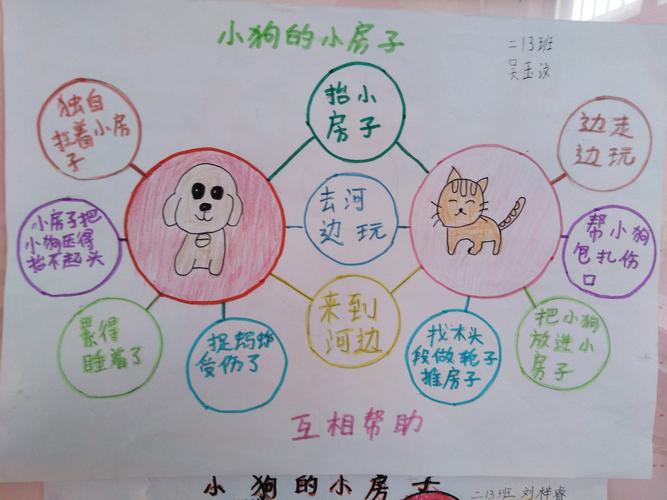 小狗的小房子
二13班
独自
拉着小房
子
抬小
房子
边走
边玩
小房子把
小狗压得
抬不起头
去河
边玩
帮小狗
包扎伤
口
累得
睡着了
捉蚂蚱
受伤了
来到
河边
找木头
段做轮子
推房子
把小狗
放进小
房子
互相帮助
小狗的小房子
二13班 刘梓睿